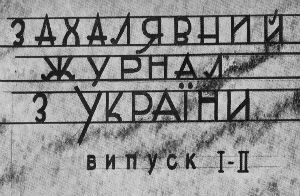 ЗАХАЛЯВНИЙ
ЖУРНАЛ
З УКРАЇНИ
випуск I-II